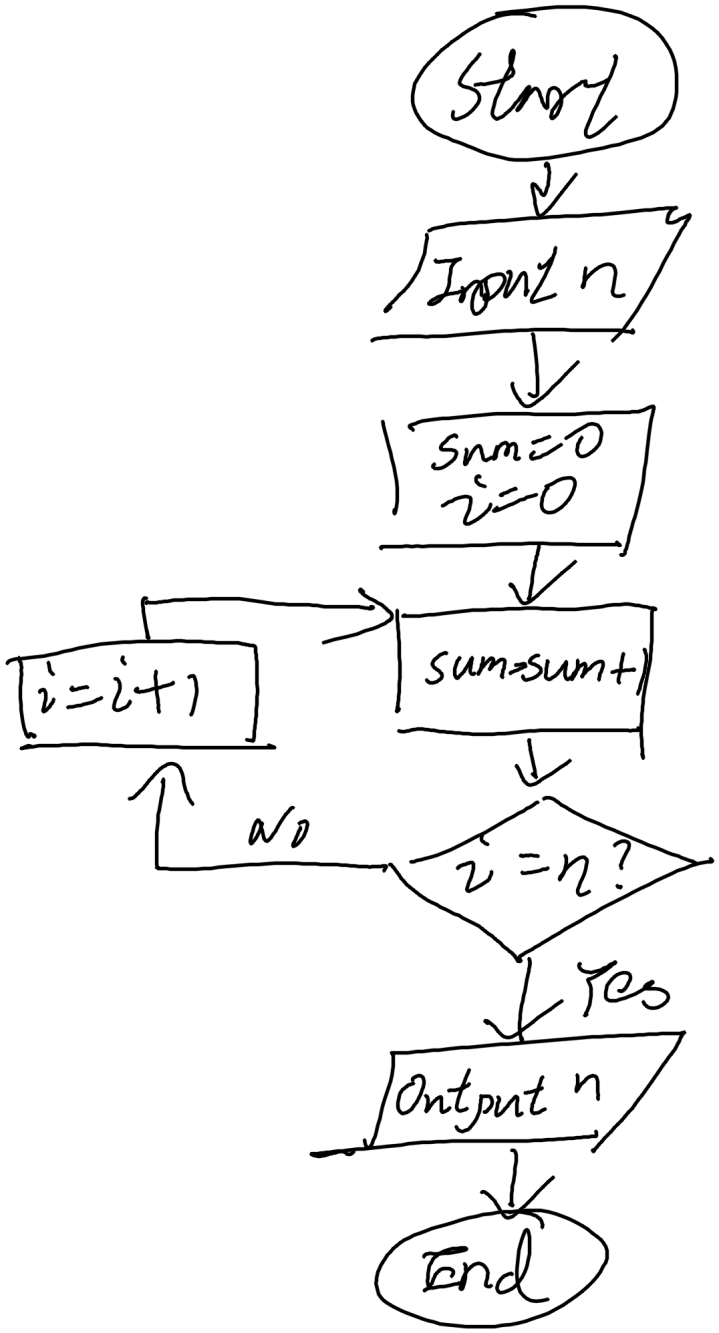 Start
Input n
sum=0
i=0
sum=sum+1
i=i+1
No
i=n?
Yes
Output n
End